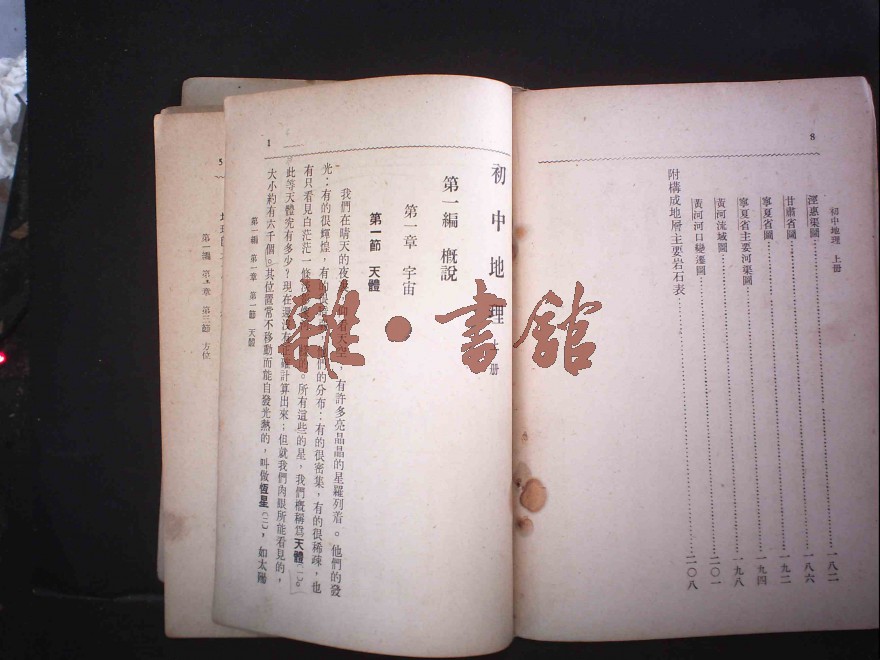 8
初中地理 上册
涇惠渠圖……一八二
甘肅省圖……一八六
寧夏省圖……一九二
寧夏省主要河渠圖……一九四
黃河流域圖……一九八
黃河河口變遷圖……二〇一
附構成地層主要岩石表……二〇八
雜·書舘
1
初中地理 上册
第一編 概說
第一章 宇宙
第一節 天體
我們在晴天的夜 仰看天空,有許多亮晶晶的星羅列着。他們的發
光:有的很輝煌,有的很 們的分布:有的很密集,有的很稀疎,也
有只看見白茫茫一條 的。所有這些的星,我們概稱爲天體(一)。
此等天體究有多少?現在還沒有 計算出來;但就我們肉眼所能看見的,
大小約有六千個。其位置常不移動而能自發光熱的,叫做恆星(二),如太陽
第一編 第一章 第一節 天體
5
第一編 第一章 第三節 方位